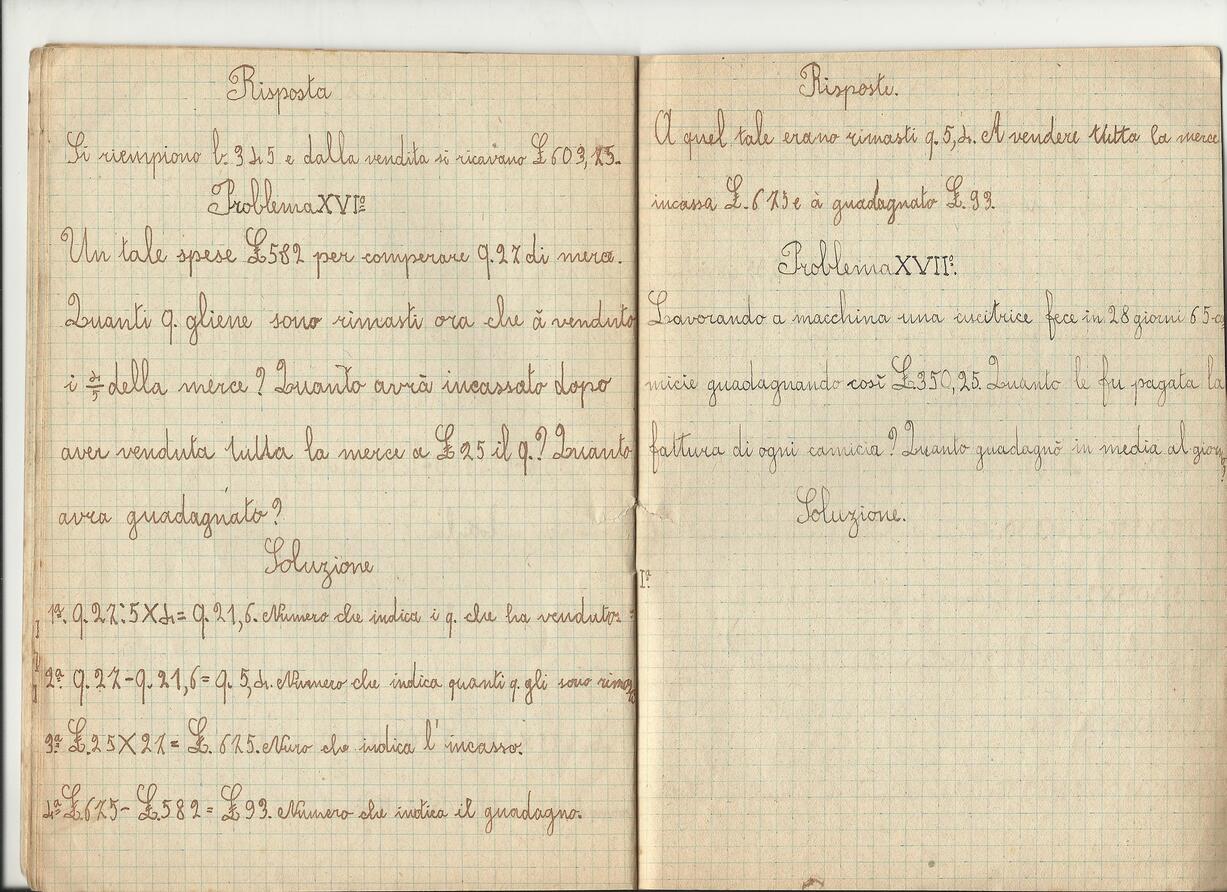 Risposta
Si riempiono b. 345 e dalla vendita si ricavano £ 603,75.
Problema XVIº
Un tale spese £ 582 per comperare q. 27 di merce.
Quanti q. gliene sono rimasti ora che à venduto
i 4/5 della merce? Quanto avrà incassato dopo
aver venduta tutta la merce a £ 25 il q.? Quanto
avra guadagnato?
Soluzione
1ª. q. 27:5X4= q. 21,6. Numero che indica i q. che ha venduto.
2ª q. 27-q. 21,6= q. 5,4. Numero che indica quanti q. gli sono rimasti
3ª £.25X27= £. 675. Nuro che indica l'incasso.
4ª £675-£.582= £93. Numero che indica il guadagno.
Risposte.
A quel tale erano rimasti q. 5,4. A vendere tutta la merce
incassa £. 675 e à guadagnato £. 93.
Problema XVIIº.
Lavorando a macchina una cucitrice fece in 28 giorni 65-ca
micie guadagnando così £.350,25. Quanto le fu pagata la
fattura di ogni camicia? Quanto guadagnò in media al giorno?
Soluzione.
Iª